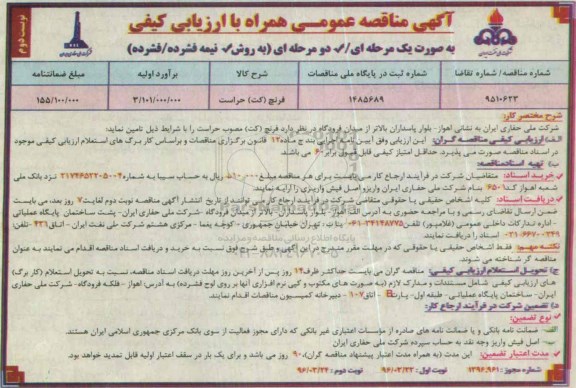 آگهی مناقصه عمومی همراه با ارزیابی کیفی
به صورت یک مرحله ای/✓ دو مرحله ای (به روش✓ نیمه فشرده/فشرده)
نوبت دوم
شماره مناقصه/ شماره تقاضا
شماره ثبت در پایگاه ملی مناقصات
شرح کالا
برآورد اولیه
مبلغ ضمانتنامه
۹۵۱۰۶۲۳
۱۴۸۵۶۸۹
فرنچ (کت) حراست
۳/۱۰۱/۰۰۰/۰۰۰
۱۵۵/۱۰۰/۰۰۰
شرح مختصر کار:
شرکت ملی حفاری ایران به نشانی اهواز- بلوار پاسداران بالاتر از میدان فرودگاه در نظر دارد فرنچ (کت) مصوب حراست را با شرایط ذیل تامین نماید:
الف: ارزیابی کیفی مناقصه گران: این ارزیابی وفق آیین نامه اجرایی بند ج ماده۱۲ قانون برگزاری مناقصات و براساس کاربرگ های استعلام ارزیابی کیفی موجود
در اسناد مناقصه صورت می پذیرد. حداقل امتیاز کیفی قابل قبول برابر ۶۰ می باشد.
ب) تهیه اسناد مناقصه:
خرید اسناد: متقاضیان شرکت در فرآیند ارجاع کار می بایست برای هر مناقصه مبلغ ۵۱۰۰۰۰ ریال به حساب سیبا به شماره ۲۱۷۴۶۵۲۲۰۵۰۰۴ نزد بانک ملی
شعبه اهواز کد۶۵۰۱ بنام شرکت ملی حفاری ایران واریز و اصل فیش واریزی را ارایه نمایند.
دریافت اسناد: کلیه اشخاص حقیقی یا حقوقی متقاضی شرکت در فرآیند ارجاع کار می توانند از تاریخ انتشار آگهی مناقصه نوبت دوم لغایت۷ روز بعد، می بایست
ضمن ارسال تقاضای رسمی و یا مراجعه حضوری به آدرس الف: اهواز- بلوار پاسداران- بالاتر از میدان فرودگاه -شرکت ملی حفاری ایران- پشت ساختمان پایگاه عملیاتی
- اداره تدارکات داخلی عمومی (فلامرپور) تلفن۳۴۱۴۸۷۷۵-۰۶۱ ب: تهران- خیابان جمهوری - کوچه یغما - مرکزی هشتم شرکت ملی نفت ایران - اتاق۴۳۱ -تلفن
۶۶۷۰۰۲۴۹-۰۲۱ اسناد را دریافت نمایند.
نکته مهم: فقط اشخاص حقیقی یا حقوقی که در مهلت مقرر مندرج در این آگهی و طبق شرح فوق نسبت به خرید و دریافت اسناد مناقصه اقدام می نمایند به عنوان
مناقصه گر شناخته می شوند.
ج) تحویل استعلام ارزیابی کیفی: مناقصه گران می بایست حداکثر ظرف ۱۴ روز پس از آخرین روز مهلت دریافت اسناد مناقصه، نسبت به تحویل استعلام (کاربرگ)
های ارزیابی کیفی شامل مستندات و مدارک لازم (به صورت های مکتوب و کپی نرم افزاری آنها بر روی لوح فشرده) به آدرس: اهواز - فلکه فرودگاه- شرکت ملی حفاری
ایران- ساختمان پایگاه عملیاتی- طبقه اول- پارت B - اتاق ۱۰۷ - دبیرخانه کمیسیون مناقصات اقدام نمایند.
د) تضمین شرکت در فرآیند ارجاع کار:
✓ نوع تضمین:
الف- ضمانت نامه بانکی و یا ضمانت نامه های صادره از مؤسسات اعتباری غیر بانکی که دارای مجوز فعالیت از سوی بانک مرکزی جمهوری اسلامی ایران هستند.
ب- اصل فیش واریز وجه نقد به حساب سپرده شرکت ملی حفاری ایران
✓ مدت اعتبار تضمین: این مدت (به همراه مدت اعتبار پیشنهاد مناقصه گران)، ۹۰ روز می باشد و برای یک بار در سقف اعتبار اولیه قابل تمدید خواهد بود.
شماره مجوز : ۱۳۹۶.۹۶۱
نوبت اول : ۹۶/۰۳/۲۳
نوبت دوم : ۹۶/۰۳/۲۴